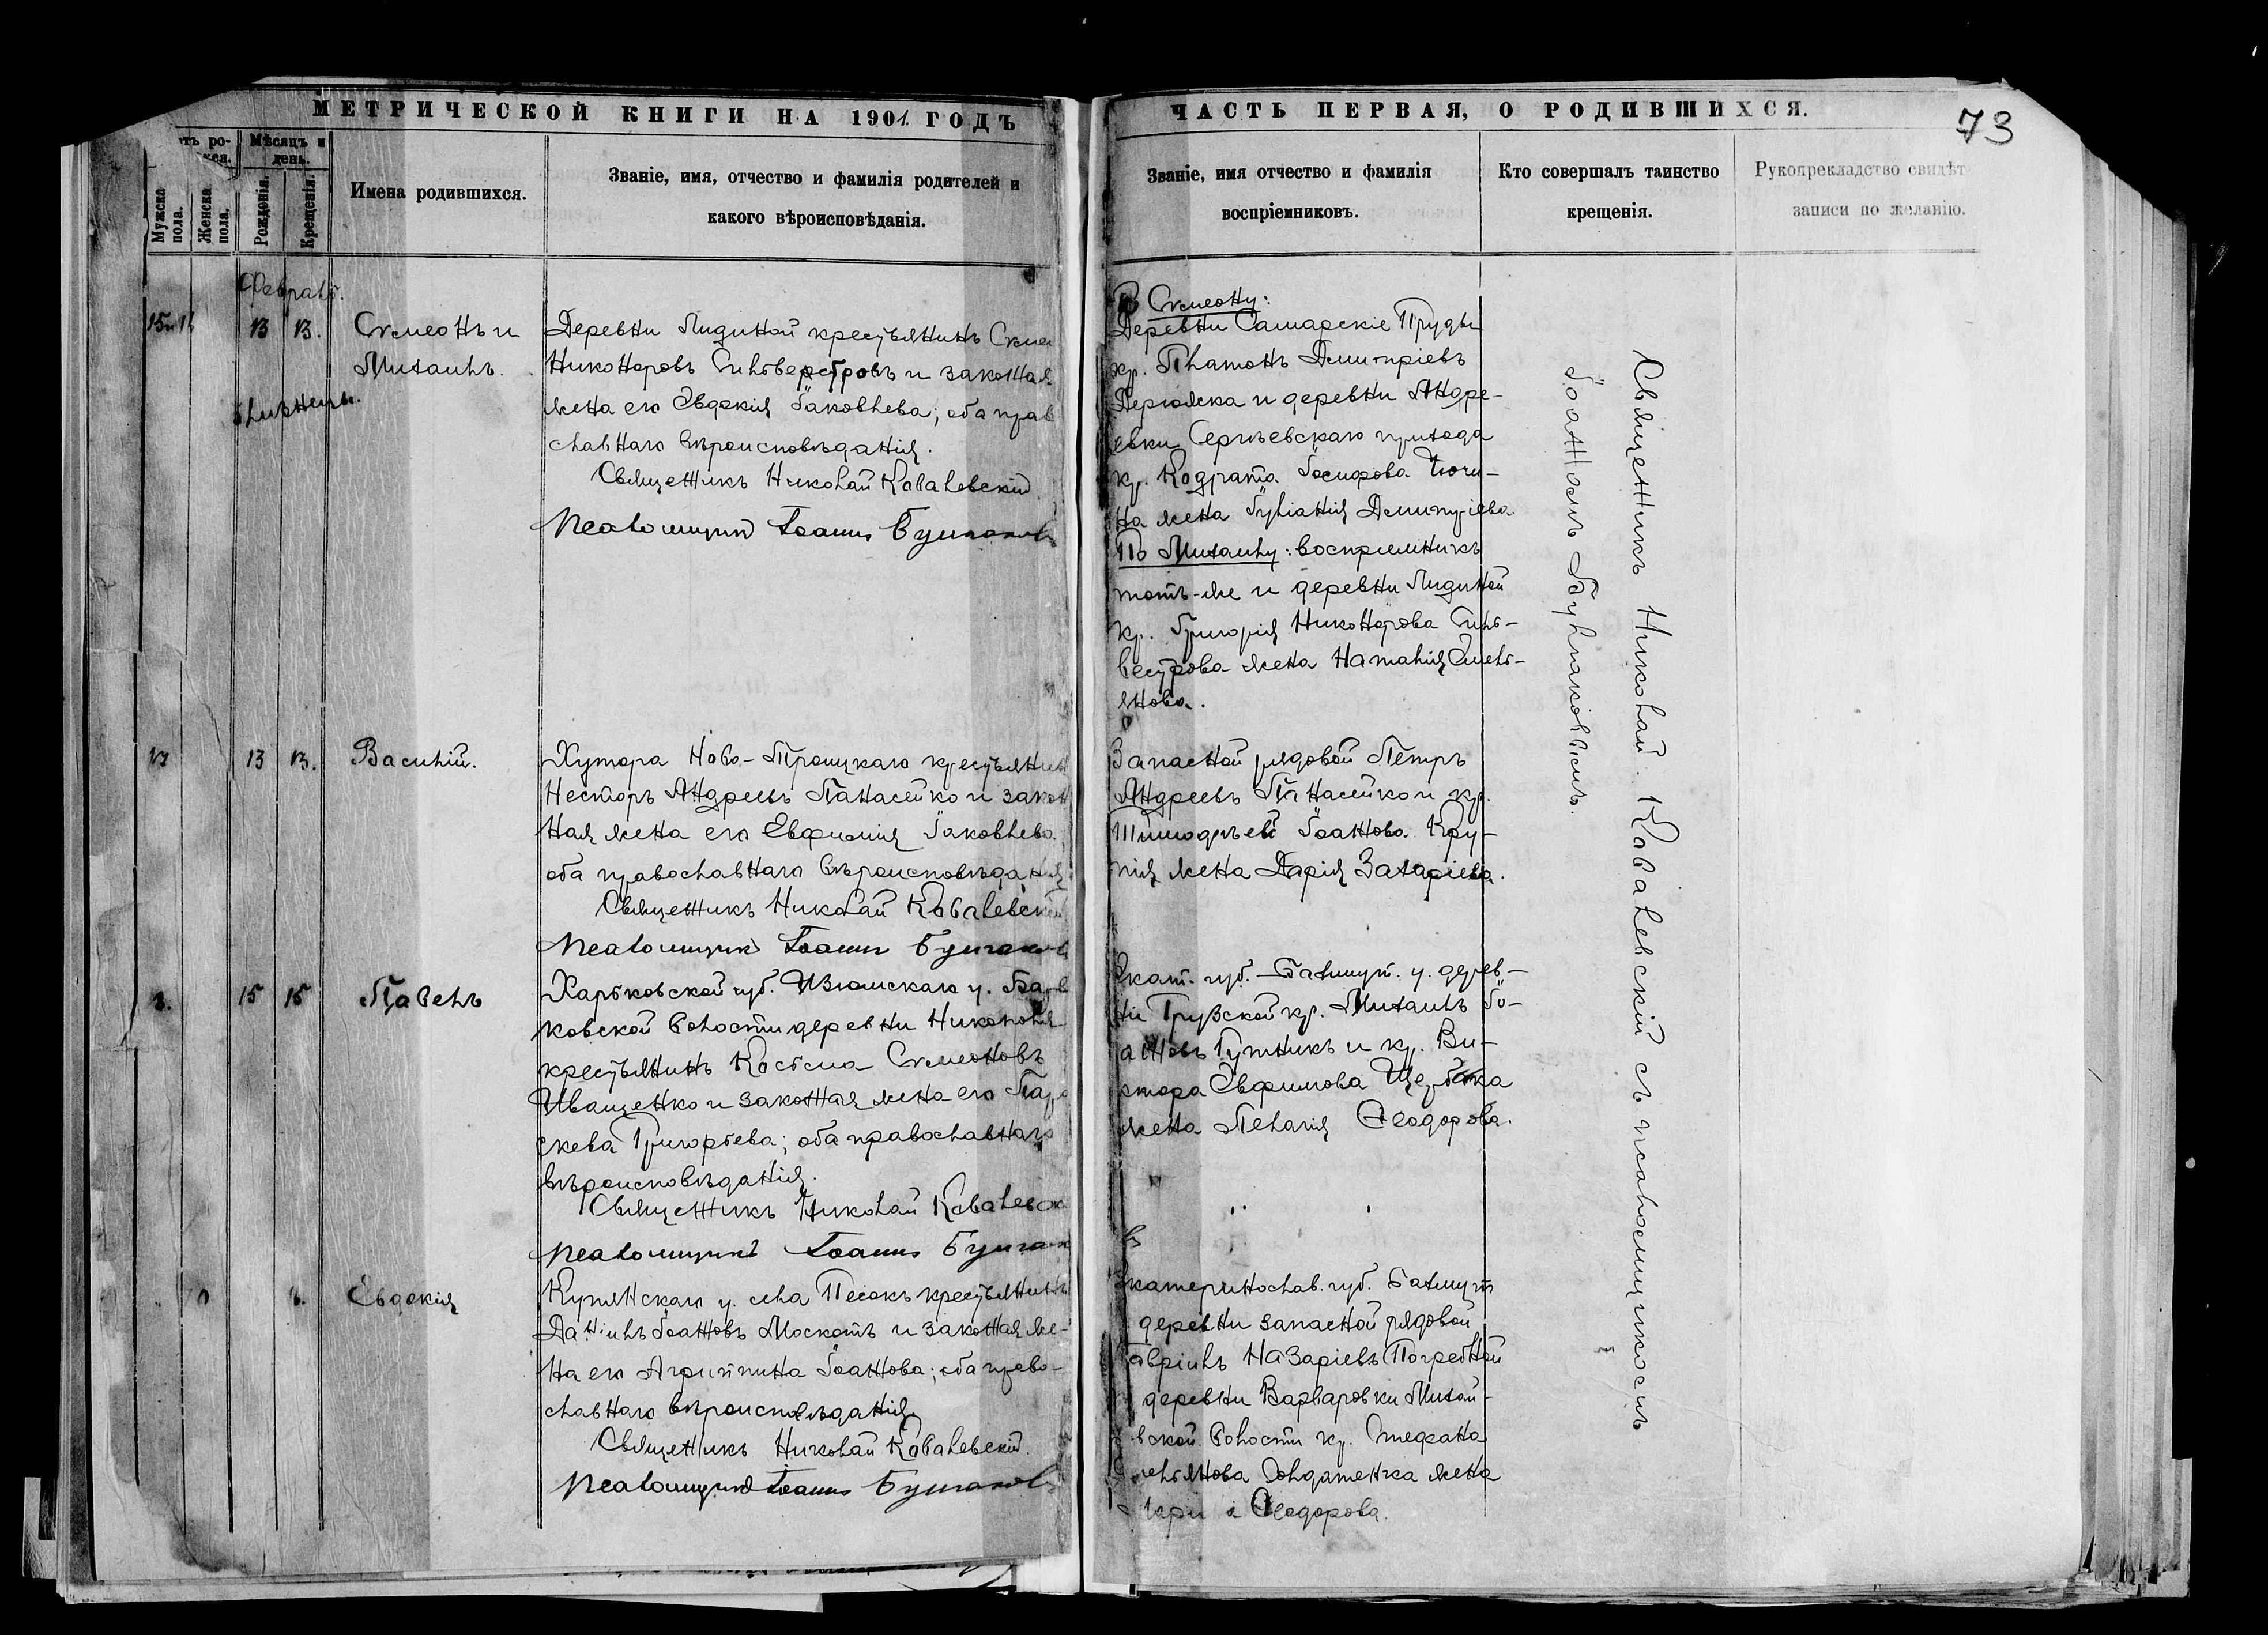 МЕТРИЧЕСКОЙ КНИГИ НА 1901 ГОДЪ
Мѣсяцъ и день.
Мужска пола.
Женска пола.
Рожденія.
Крещенія.
Имена родившихся.
Званіе, имя, отчество и фамилія родителей и
какого вѣроисповѣданія.
Февраль.
13 13.
Симеонъ и
Михаилъ.
близнецы.
Деревни Лидиной крестьянинъ Симе
Никоноровъ Сильверстровъ и законная
жена его Евдокія Іаковлева; оба прав
славнаго вѣроисповѣданія.
Священникъ Николай Ковалевскій
Псаломщикъ Іоаннъ Булгаковъ
17 13 13.
Василій.
Хутора Ново-Троицкаго крестьянин
Несторъ Андреевъ Панасейко и закон
ная жена его Евфимія Іаковлева.
оба православнаго вѣроисповѣданія
Священникъ Николай Ковалевскій
Псаломщикъ Іоаннъ Булгаковъ
15 15
Павелъ
Харьковской губ. Изюмскаго у. Барв
ковской волости деревни Никополя
крестьянинъ Косьма Симеоновъ
Иващенко и законная жена его Пара
скева Григорьева; оба православнаго
вѣроисповѣданія.
Священникъ Николай Ковалевск
Псаломщикъ Іоаннъ Булгаков
Евдокія
Купянскаго у. села Песокъ крестьянинъ
Даніилъ Іоанновъ Москотъ и законная же-
на его Агриппина Іоаннова; оба право-
славнаго вѣроисповѣданія
Священникъ Николай Ковалевскій.
Псаломщикъ Іоаннъ Булгаковъ
ЧАСТЬ ПЕРВАЯ, О РОДИВШИХСЯ.
73
Званіе, имя отчество и фамилія
воспріемниковъ.
Кто совершалъ таинство
крещенія.
Рукоприкладство свидѣт
записи по желанію.
По Симеону:
Деревни Самарскіе Пруды
кр. Платонъ Димитріевъ
и деревни Андре-
евки Сергѣевскаго прихода
кр. Кодрата Іосифова
на жена Іуліанія Димитріева.
По Михаилу: воспріемникъ
тотъ-же и деревни Лидиной
кр. Григорія Никонорова Силь-
вестрова жена Наталія Емель-
янова.
Запасной рядовой Петръ
Андреевъ Панасейко и кр.
Тимофѣей Іоаннова Кру-
пія жена Дарія Захаріева.
Екат. губ. Бахмут. у. дерев-
ни Грузской кр. Михаилъ Іо-
анновъ Гутникъ и кр. Ви-
ктора Евфимова Щербака
жена Пелагія Ѳеодорова.
Екатеринослав. губ. Бахмут
деревни запасной рядовой
Гавріилъ Назаріевъ Погребной
деревни Варваровки Михай-
вской волости кр. Стефана
Емельянова Солдатенка жена
Марія Ѳеодорова.
Священникъ Николай Ковалевскій съ псаломщикомъ
Іоанномъ Булгаковымъ.